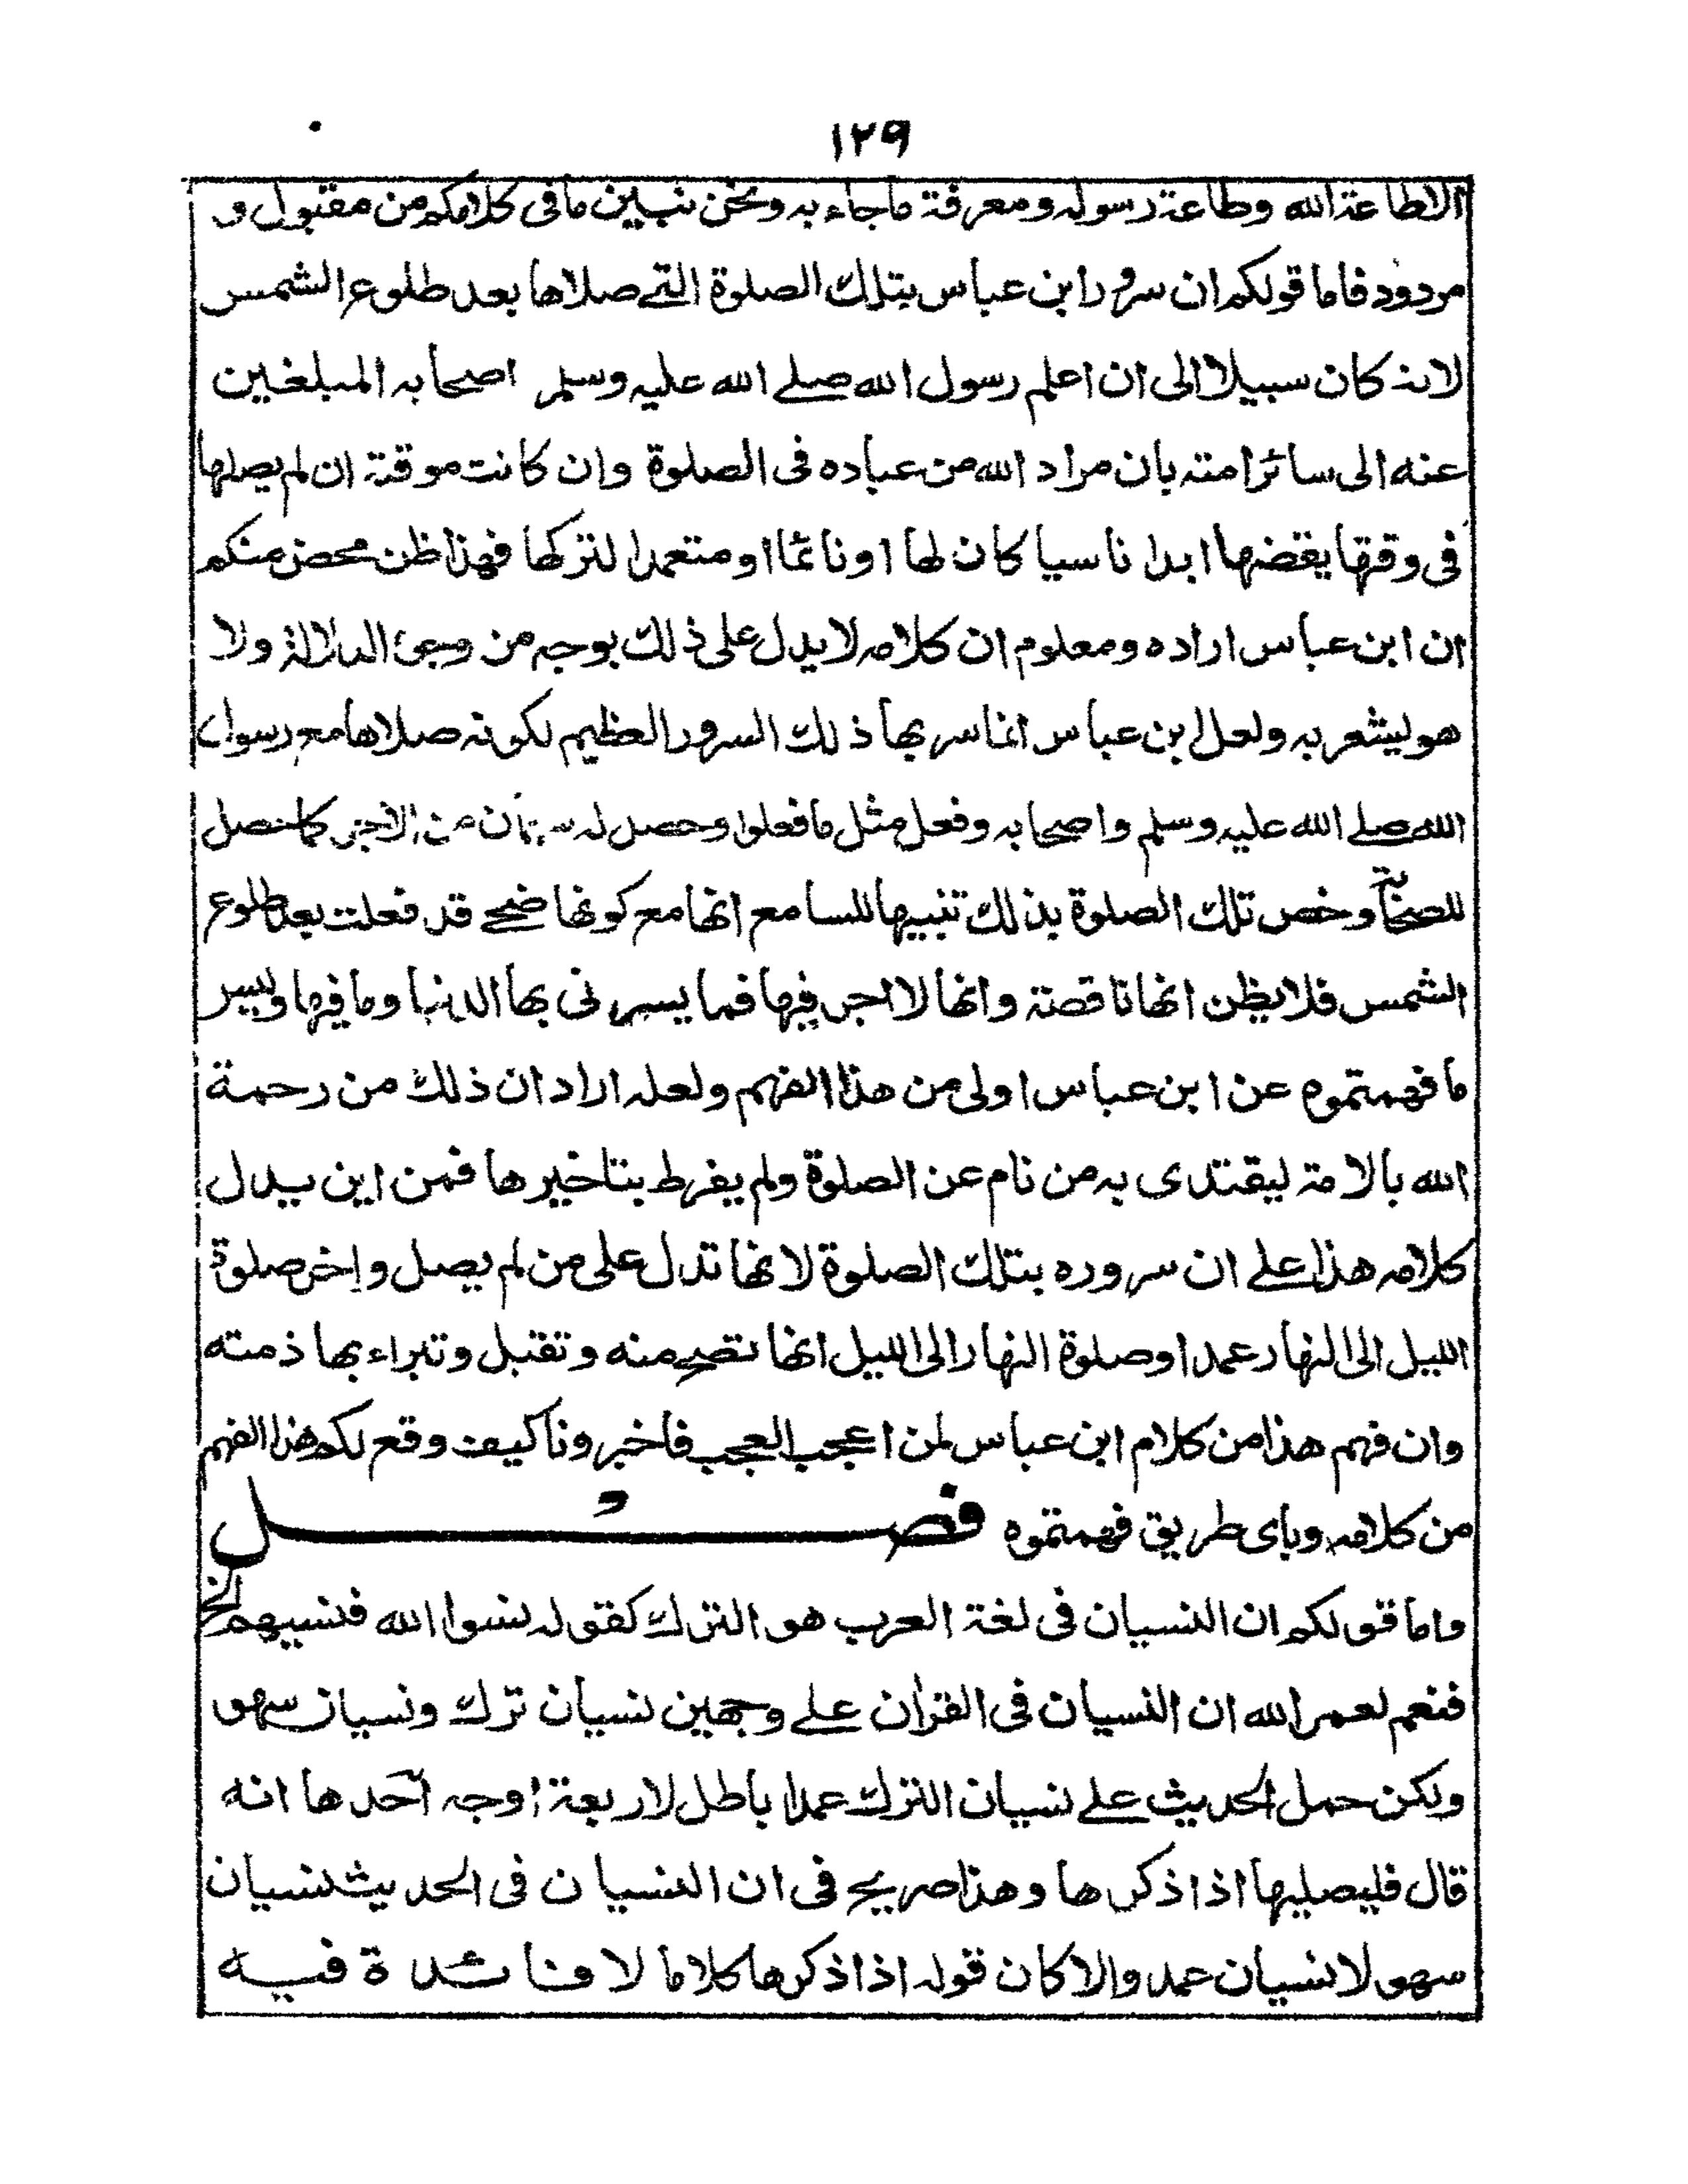 ١٢٩
الاطاعة الله وطاعة رسوله ومعرفة ماجاء به ونحن نبين مافى كلامكم من مقبول و
مردود فاما قولكم ان سرور ابن عباس بتلك الصلوة التے صلاها بعد طلوع الشمس
لانه كان سبيلا الى ان اعلم رسول الله صلے الله عليه وسلم اصحابه المبلغين
عنه الى سائر امته بان مراد الله من عباده فى الصلوة وان كانت موقتة ان لم يصلها
فى وقتها يقضها ابدا ناسيا كان لها او نائما او متعمدا لتركها فهذا ظن محض منكم
ان ابن عباس اراده ومعلوم ان كلامه لا يدل على ذلك بوجه من وجوه الدلالة ولا
هو ليشعر به ولعل ابن عباس انما سر بها ذلك السرور العظيم لكونه صلاها مع رسول
الله صلے الله عليه وسلم واصحابه وفعل مثل ما فعلوا وحصل له من الاجر كما حصل
للصحابة وخص تلك الصلوة بذلك تنبيها للسامع انها مع كونها ضحے قد فعلت بعد طلوع
الشمس فلا يظن انها ناقصة وانها لا اجر فيها فما يسرنى بها الدنيا وما فيها وليس
ما فهمتموه عن ابن عباس اولى من هذا الفهم ولعله اراد ان ذلك من رحمة
الله بالامة ليقتدى به من نام عن الصلوة ولم يفرط بتاخيرها فمن اين يدل
كلامه هذا علے ان سروره بتلك الصلوة لانها تدل على من لم يصل واخر صلوة
الليل الى النهار عمدا وصلوة النهار الى الليل انها تصح منه وتقبل وتبراء بها ذمته
وان فهم هذا من كلام ابن عباس لمن اعجب العجب فاخبرونا كيف وقع لكم هذا الفهم
من كلامه وباى طريق فهمتموه فصل
واما قولكم ان النسيان فى لغة العرب هو الترك كقوله نسوا الله فنسيهم الخ
فنعم لعمر الله ان النسيان فى القران علے وجهين نسيان ترك ونسيان سهو
ولكن حمل الحديث علے نسيان الترك عمدا باطل لاربعة اوجه احدها انه
قال فليصليها اذا ذكرها وهذا صريح فى ان النسيان فى الحديث نسيان
سهو لا نسيان عمد والا كان قوله اذا ذكرها كلاما لا فائدة فيه